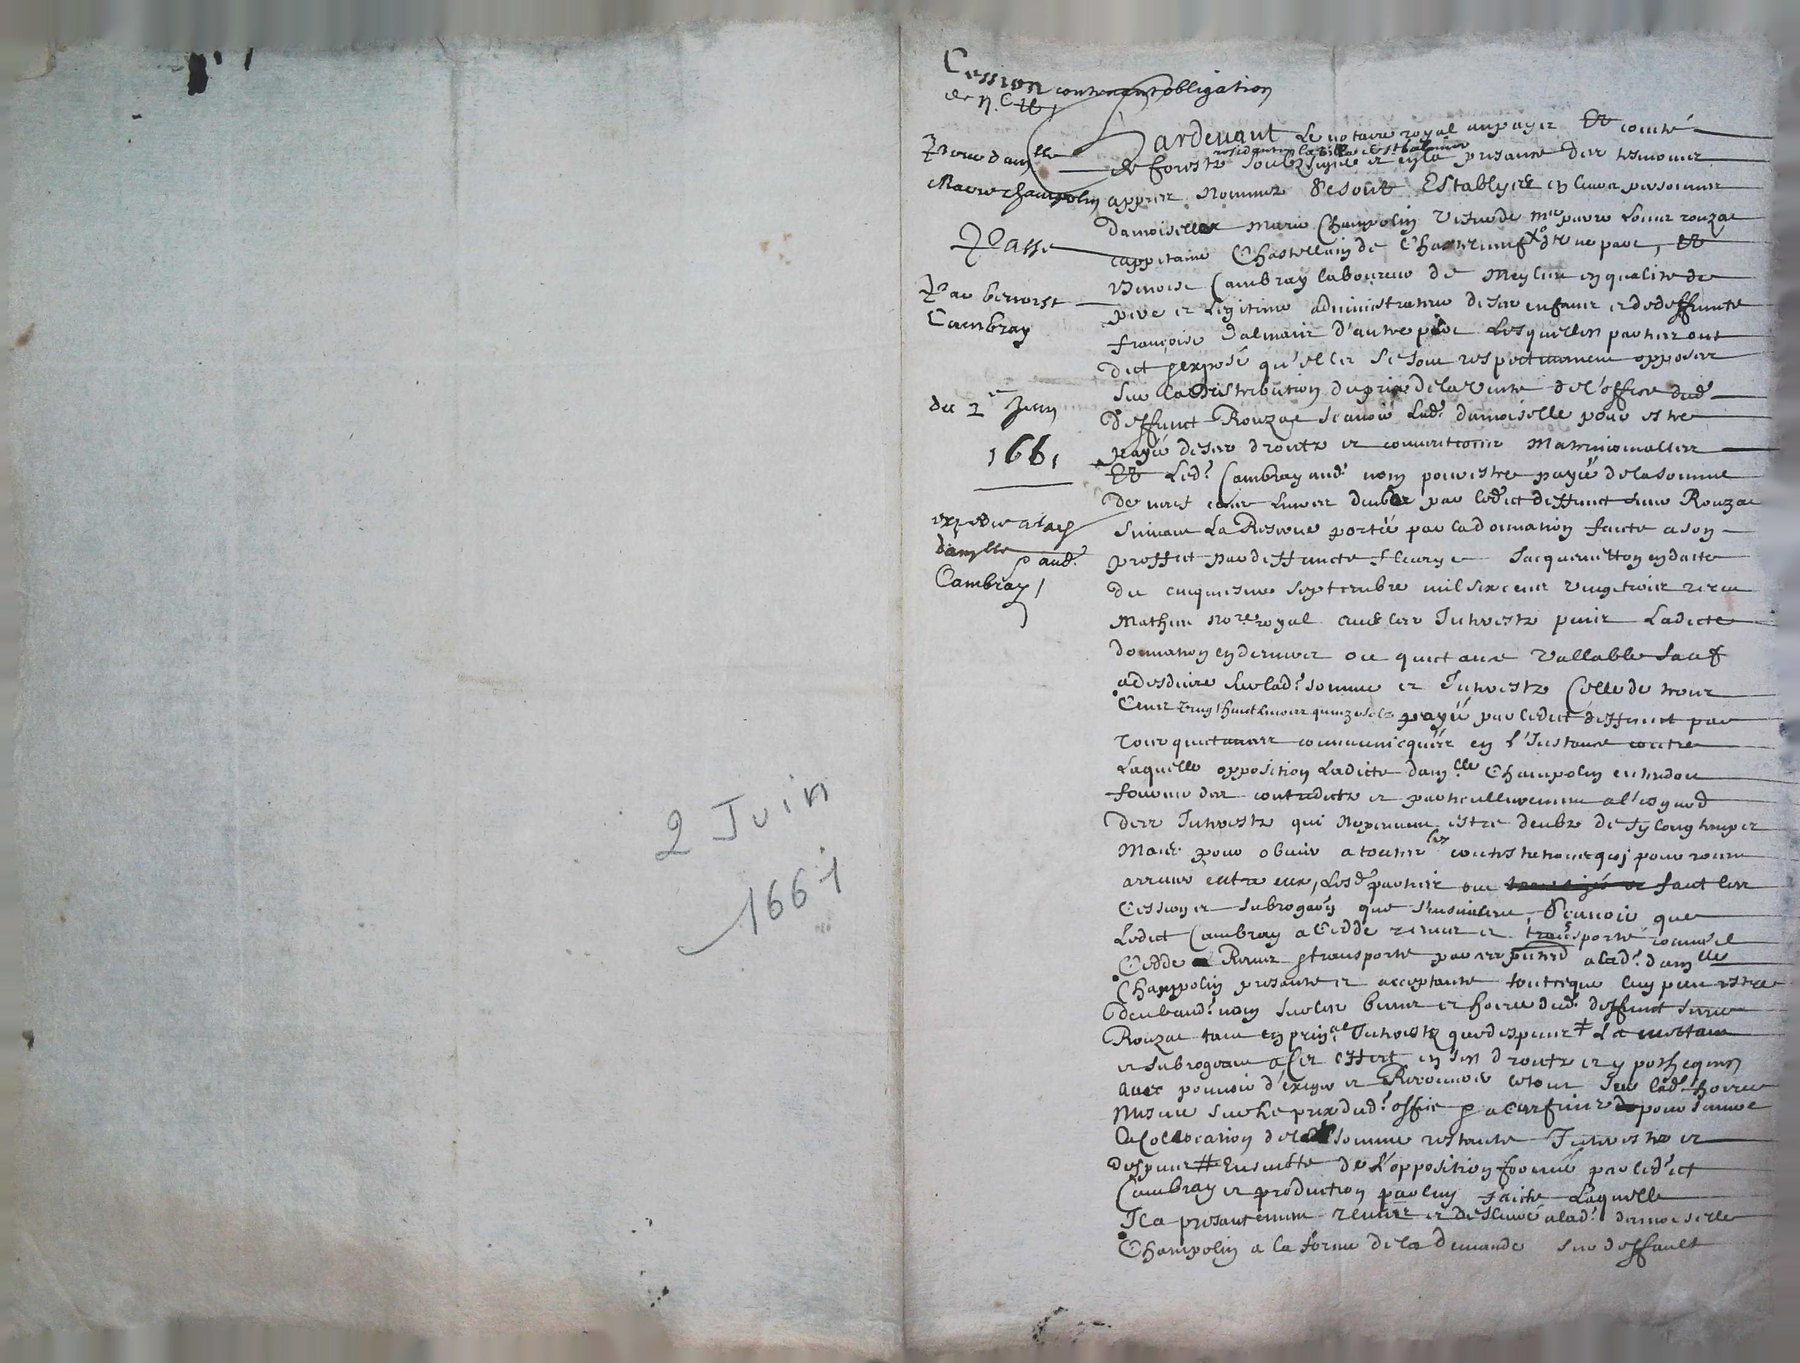 Cession contenant obligation
de n. C tt
Pour dam.lle
Marie Champolin
Passé
Par benoist
Cambray
du 2e Juin
1661
expedié a lad.
dam.lle
aud.
Cambray
2 Juin
1661
Pardevant Le notaire royal au payis Et comté
de forestz soubzsigné et en la presance des tesmoins
residant en la ville de st balmier
appres nommes Se sont Establyes en leurs personnes
damoiselle Marie Champolin Vefve de me pierre Louis rouzac
cappitaine Chastellain de Chasteauneuf d'une part, Et
Benoist Cambray laboureur de Meylieu en qualité de
pere et Legitime administrateur de ses enfans et de deffuncte
françoise dalmais d'autre part Lesquelles parties ont
dict et exposé qu'elles se sont respectivement opposées
Sur la distribution du prix de la vente de l'office dud.
deffunct Rouzac scavoir Lad. damoiselle pour estre
payée de ses droictz et conventions Matrimonialles
Et Led. Cambray aud. nom pour estre payé de la somme
de cens livres deubes par ledict deffunct sieur Rouzac
Suivant La Reserve portée par la donnation faicte a son
proffict par deffuncte fleurye Jacquemetton en datte
du cinquiesme Septembre mil six cens vingt trois receu
Mathieu no.re royal avec les Interestz puis Ladicte
donnation en deniers ou quictance vallable sauf
a desduire sur lad. somme et Interestz Celle de trois
Cens vingt huict livres quinze solz payée par ledict deffunct par
quictances communicquées en l'Instance contre
Laquelle opposition Ladicte dam.lle Champolin entendoit
fournir des contredictz et particulierement a l'esgard
des Interestz qui ne peuvent estre deubz de sy long temps
Mais pour obvier a toutes les contestations qui pourroient
arriver entre eux, Lesd. parties ont faict les
Cession et subrogation que s'ensuivent, Scavoir que
Ledict Cambray a Ceddé remis et transporté comme il
Cedde Remet et transporte par ces pntes a lad. dam.lle
Champolin presante et acceptante tout ce que luy peut estre
deub aud. nom sur les biens et hoirie dud. deffunct sieur
Rouzac tant en prin.al Interestz que despens La mettant
et subrogeant a ces effect en ses droictz et ypotheques
avec pouvoir d'exiger et Recouvrer le tout sur lad. hoirie
Mesme sur le prix dud. office et a ces fins pour suivre
La Collocation de lad. somme restante Interestz et
despens Ensemble de l'opposition formée par ledict
Cambray et production par luy faicte Laquelle
Il a presantement remise et deslivré a lad. damoiselle
Champolin a la forme de la demande sur deffault